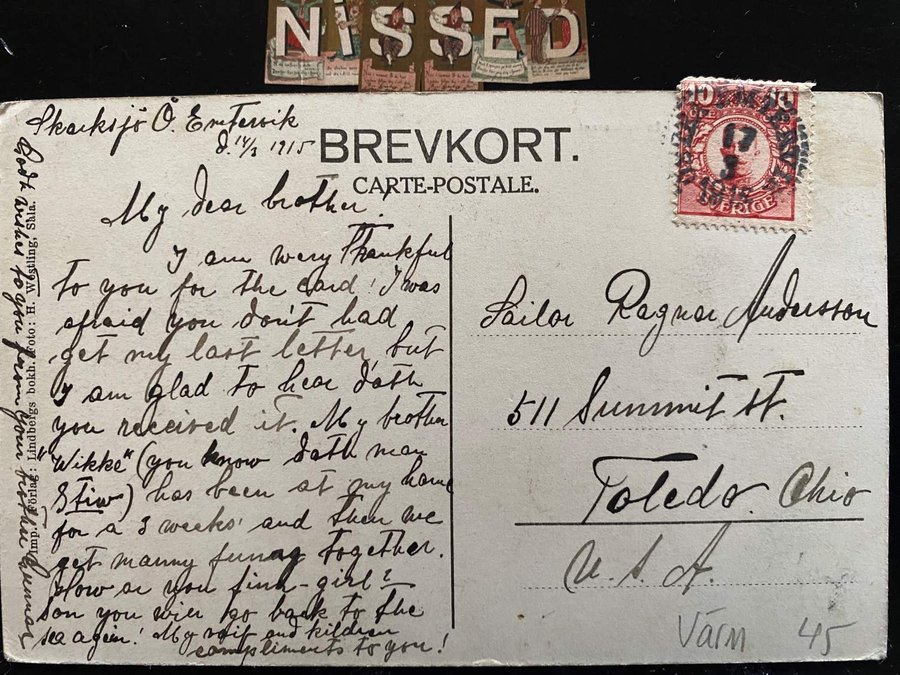 NiSSED
Skarksjö Ö. Emtervik
d. 14/3 1915
BREVKORT.
CARTE-POSTALE.
17
3
SVERIGE
My dear brother!
I am wery thankful
to you for the card! I was
afraid you don't had
get my last letter, but
I am glad to hear dath
you received it. My brother
"Wikke" (you know dath man
Stiw) has been at my home
for a 3 weeks' and then we
get manny funny together.
How ar you finn-girl?
son you will go back to the
sea again! My voif and kildren
compliments to you!
Godt wishes to you from your brother Gunnar
Imp. Förlag: Lindbergs bokh. Foto: H. Westling, Shla.
Sailor Ragnar Andersson
511 Summit st.
Toledo. Ohio
U. S. A.
Värm 45